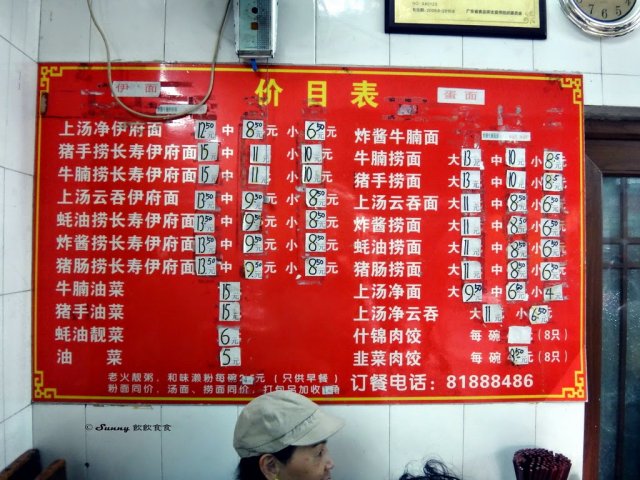 伊面
价目表
蛋面
上汤净伊府面 12.50 中 8.50元 小 6.50元
猪手捞长寿伊府面 15 中 11元 小 10元
牛腩捞长寿伊府面 15 中 11元 小 10元
上汤云吞伊府面 13.50 中 9.50元 小 8.50元
蚝油捞长寿伊府面 13.50 中 9.50元 小 8.50元
炸酱捞长寿伊府面 13.50 中 9.50元 小 8.50元
猪肠捞长寿伊府面 13.50 中 9.50元 小 8.50元
牛腩油菜 15元
猪手油菜 15元
蚝油靓菜 6元
油 菜 5元
炸酱牛腩面
牛腩捞面 大 13元 中 10元 小 8.5
猪手捞面 大 13元 中 10元 小 8.5
上汤云吞面 大 11元 中 8.50元 小 6.50元
炸酱捞面 大 11元 中 8.50元 小 6.50元
蚝油捞面 大 11元 中 8.50元 小 6.50元
猪肠捞面 大 11元 中 8.50元 小 6.50元
上汤净面 大 9.50 中 6.50元 小 4元
上汤净云吞 大 11元 小 6.50元
什锦肉饺 每碗 (8只)
韭菜肉饺 每碗 8.50元 (8只)
老火靓粥,和味濑粉每碗 元 (只供早餐)
粉面同价、汤面、捞面同价,打包另加收 角
订餐电话:81888486
© Sunny 飲飲食食